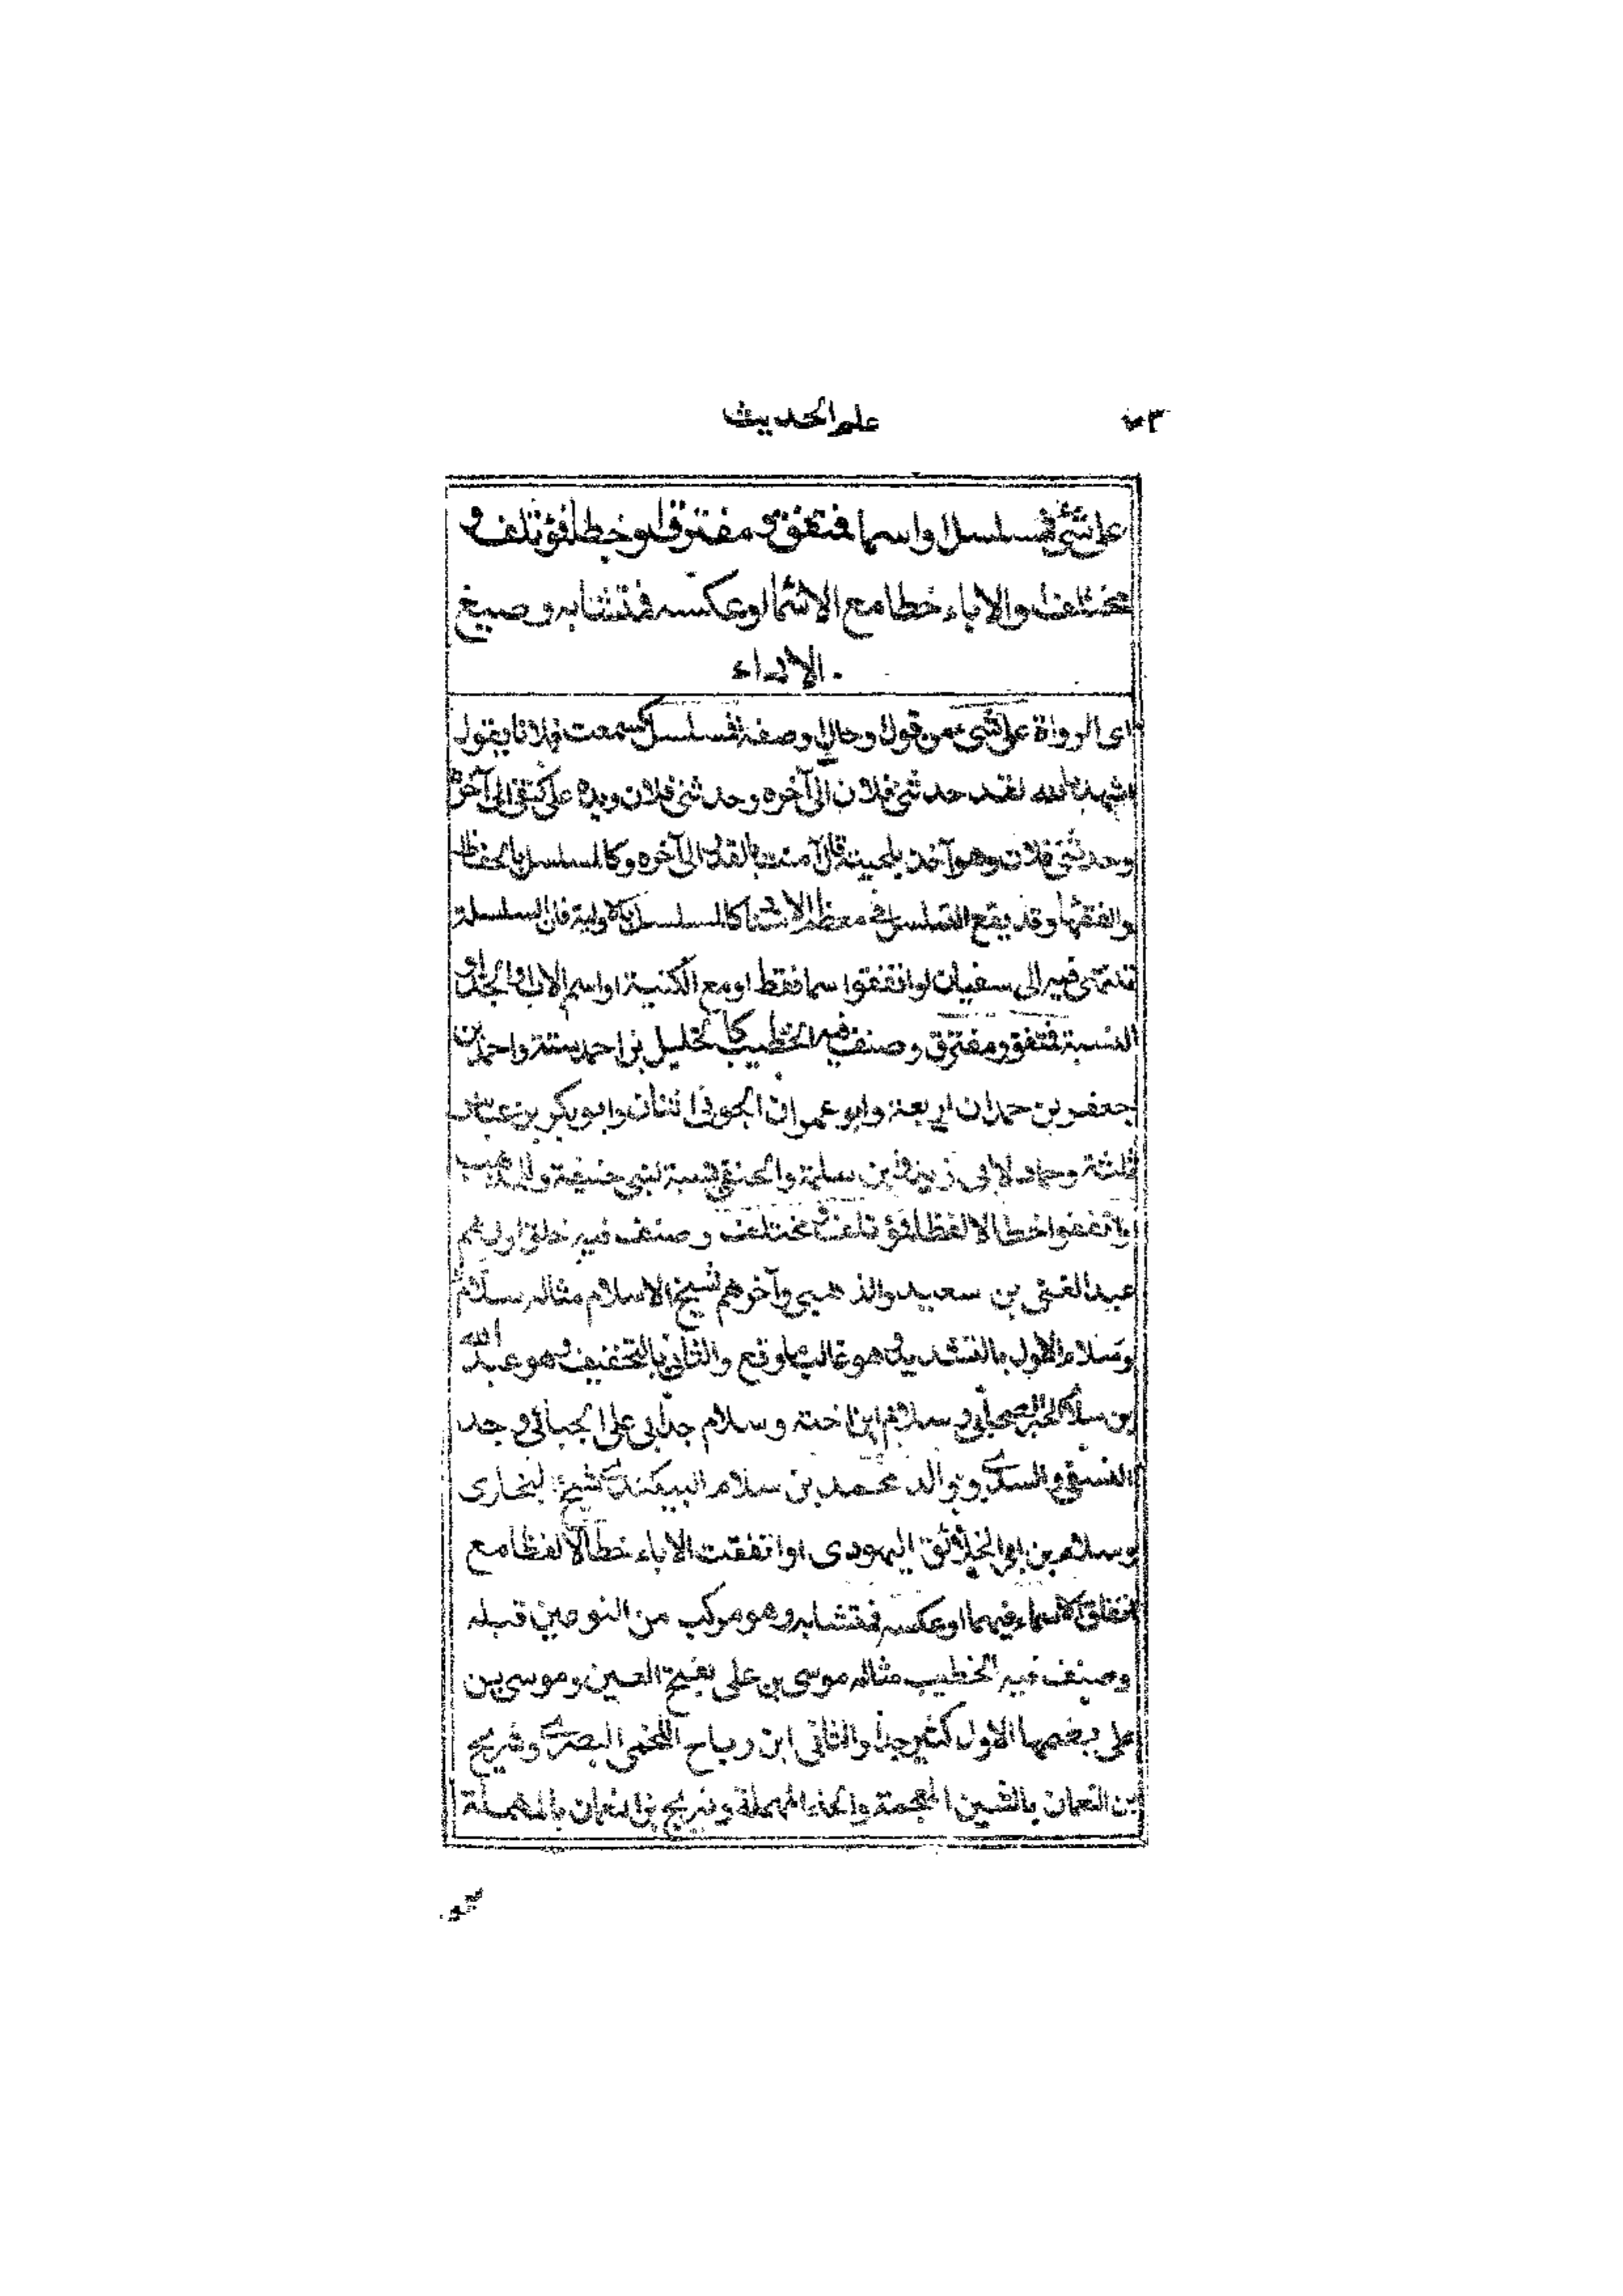 علم الحديث
على شئ فمسلسل او اسما فمتفق و مفترق او خطا فمؤتلف و
مختلف او الاباء خطا مع الاسماء او عكسه فمتشابه و صيغ
الاداء
اى الرواة على شئ من قول او حال او صفة فمسلسل كسمعت فلانا يقول
اشهد بالله لقد حدثنى فلان الى آخره وحدثنى فلان ويده على كتفى الى آخره
وحدثنى فلان وهو آخذ بلحيته قال آمنت بالقدر الى آخره وكالمسلسل بالحفاظ
والفقهاء وقد يقع التسلسل فى معظم الاسناد كالمسلسل بالاولية فان السلسلة
تنتهى فيه الى سفيان او اتفقوا اسما فقط او مع الكنية او اسم الاب او الجد او
النسبة فمتفق ومفترق وصنف فيه الخطيب كالخليل بن احمد ستة واحمد بن
جعفر بن حمدان اربعة وابو عمران الجونى اثنان وابو بكر بن عياش
ثلثة وحماد لابى زيد وابن سلمة والحنفى نسبة لبنى حنيفة والمذهب
او اتفقوا خطا لا لفظا فمؤتلف ومختلف وصنف فيه خلق اولهم
عبد الغنى بن سعيد والذهبى وآخرهم شيخ الاسلام مثاله سلام
وسلام الاول بالتشديد وهو غالب ما وقع والثانى بالتخفيف وهو عبد الله
بن سلام الحبر الصحابى و سلام ابن اخته وسلام جد ابى على الجبائى وجد
النسفى والسيدى ووالد محمد بن سلام البيكندى شيخ البخارى
وسلام بن ابى الحقيق اليهودى او اتفقت الاباء خطا لا لفظا مع
اتفاق الاسماء فيهما او عكسه فمتشابه وهو مركب من النوعين قبله
وصنف فيه الخطيب مثاله موسى بن على بفتح العين وموسى بن
على بضمها الاول كثير جدا والثانى ابن رباح اللخمى البصرى وشريح
بن النعمان بالشين المعجمة والحاء المهملة وسريج بن النعمان بالمهملة